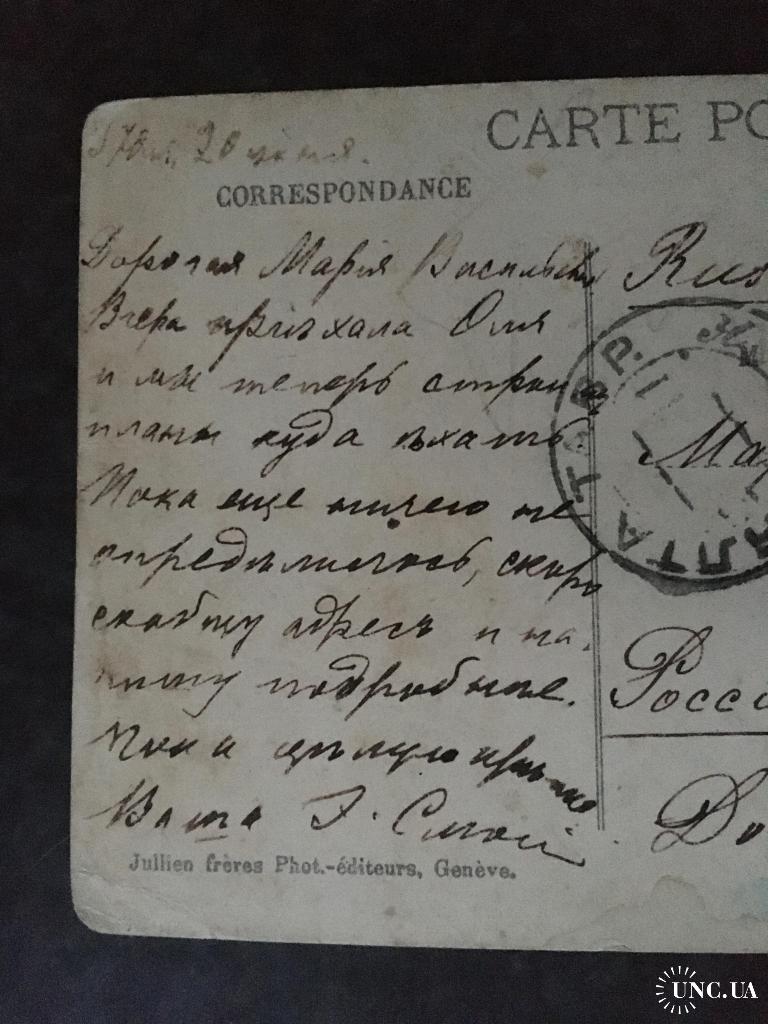 20 июня.
CARTE PO
CORRESPONDANCE
Дорогая Марія Васильевна
Вчера пріѣхала Оля
и мы теперь строим
планы куда ѣхать.
Пока еще ничего не
опредѣлилось, скоро
сообщу адресъ и на-
пишу подробнѣе.
Пока цѣлую крѣпко
Ваша
Jullien frères Phot.-éditeurs, Genève.
Rus
Ма
Росси
До
ЯЛТА ТАВР.
UNC.UA